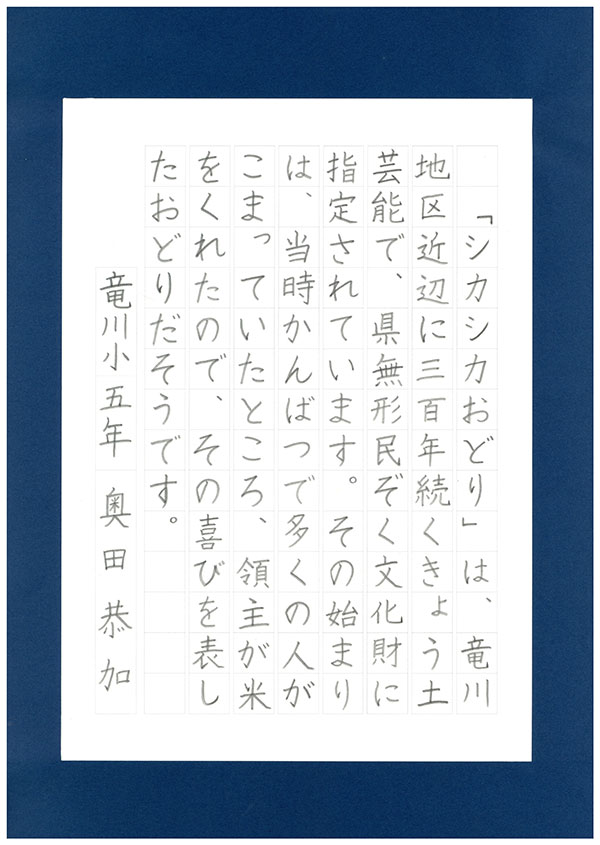 「シカシカおどり」は、竜川
地区近辺に三百年続くきょう土
芸能で、県無形民ぞく文化財に
指定されています。その始まり
は、当時かんばつで多くの人が
こまっていたところ、領主が米
をくれたので、その喜びを表し
たおどりだそうです。
竜川小五年 奥田恭加